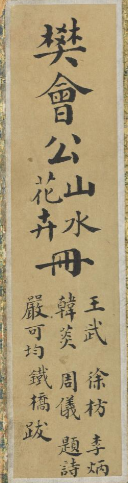 樊會公
山水
花卉
冊
王武 徐枋 李炳
韓菼 周儀 題詩
嚴可均鐵橋跋